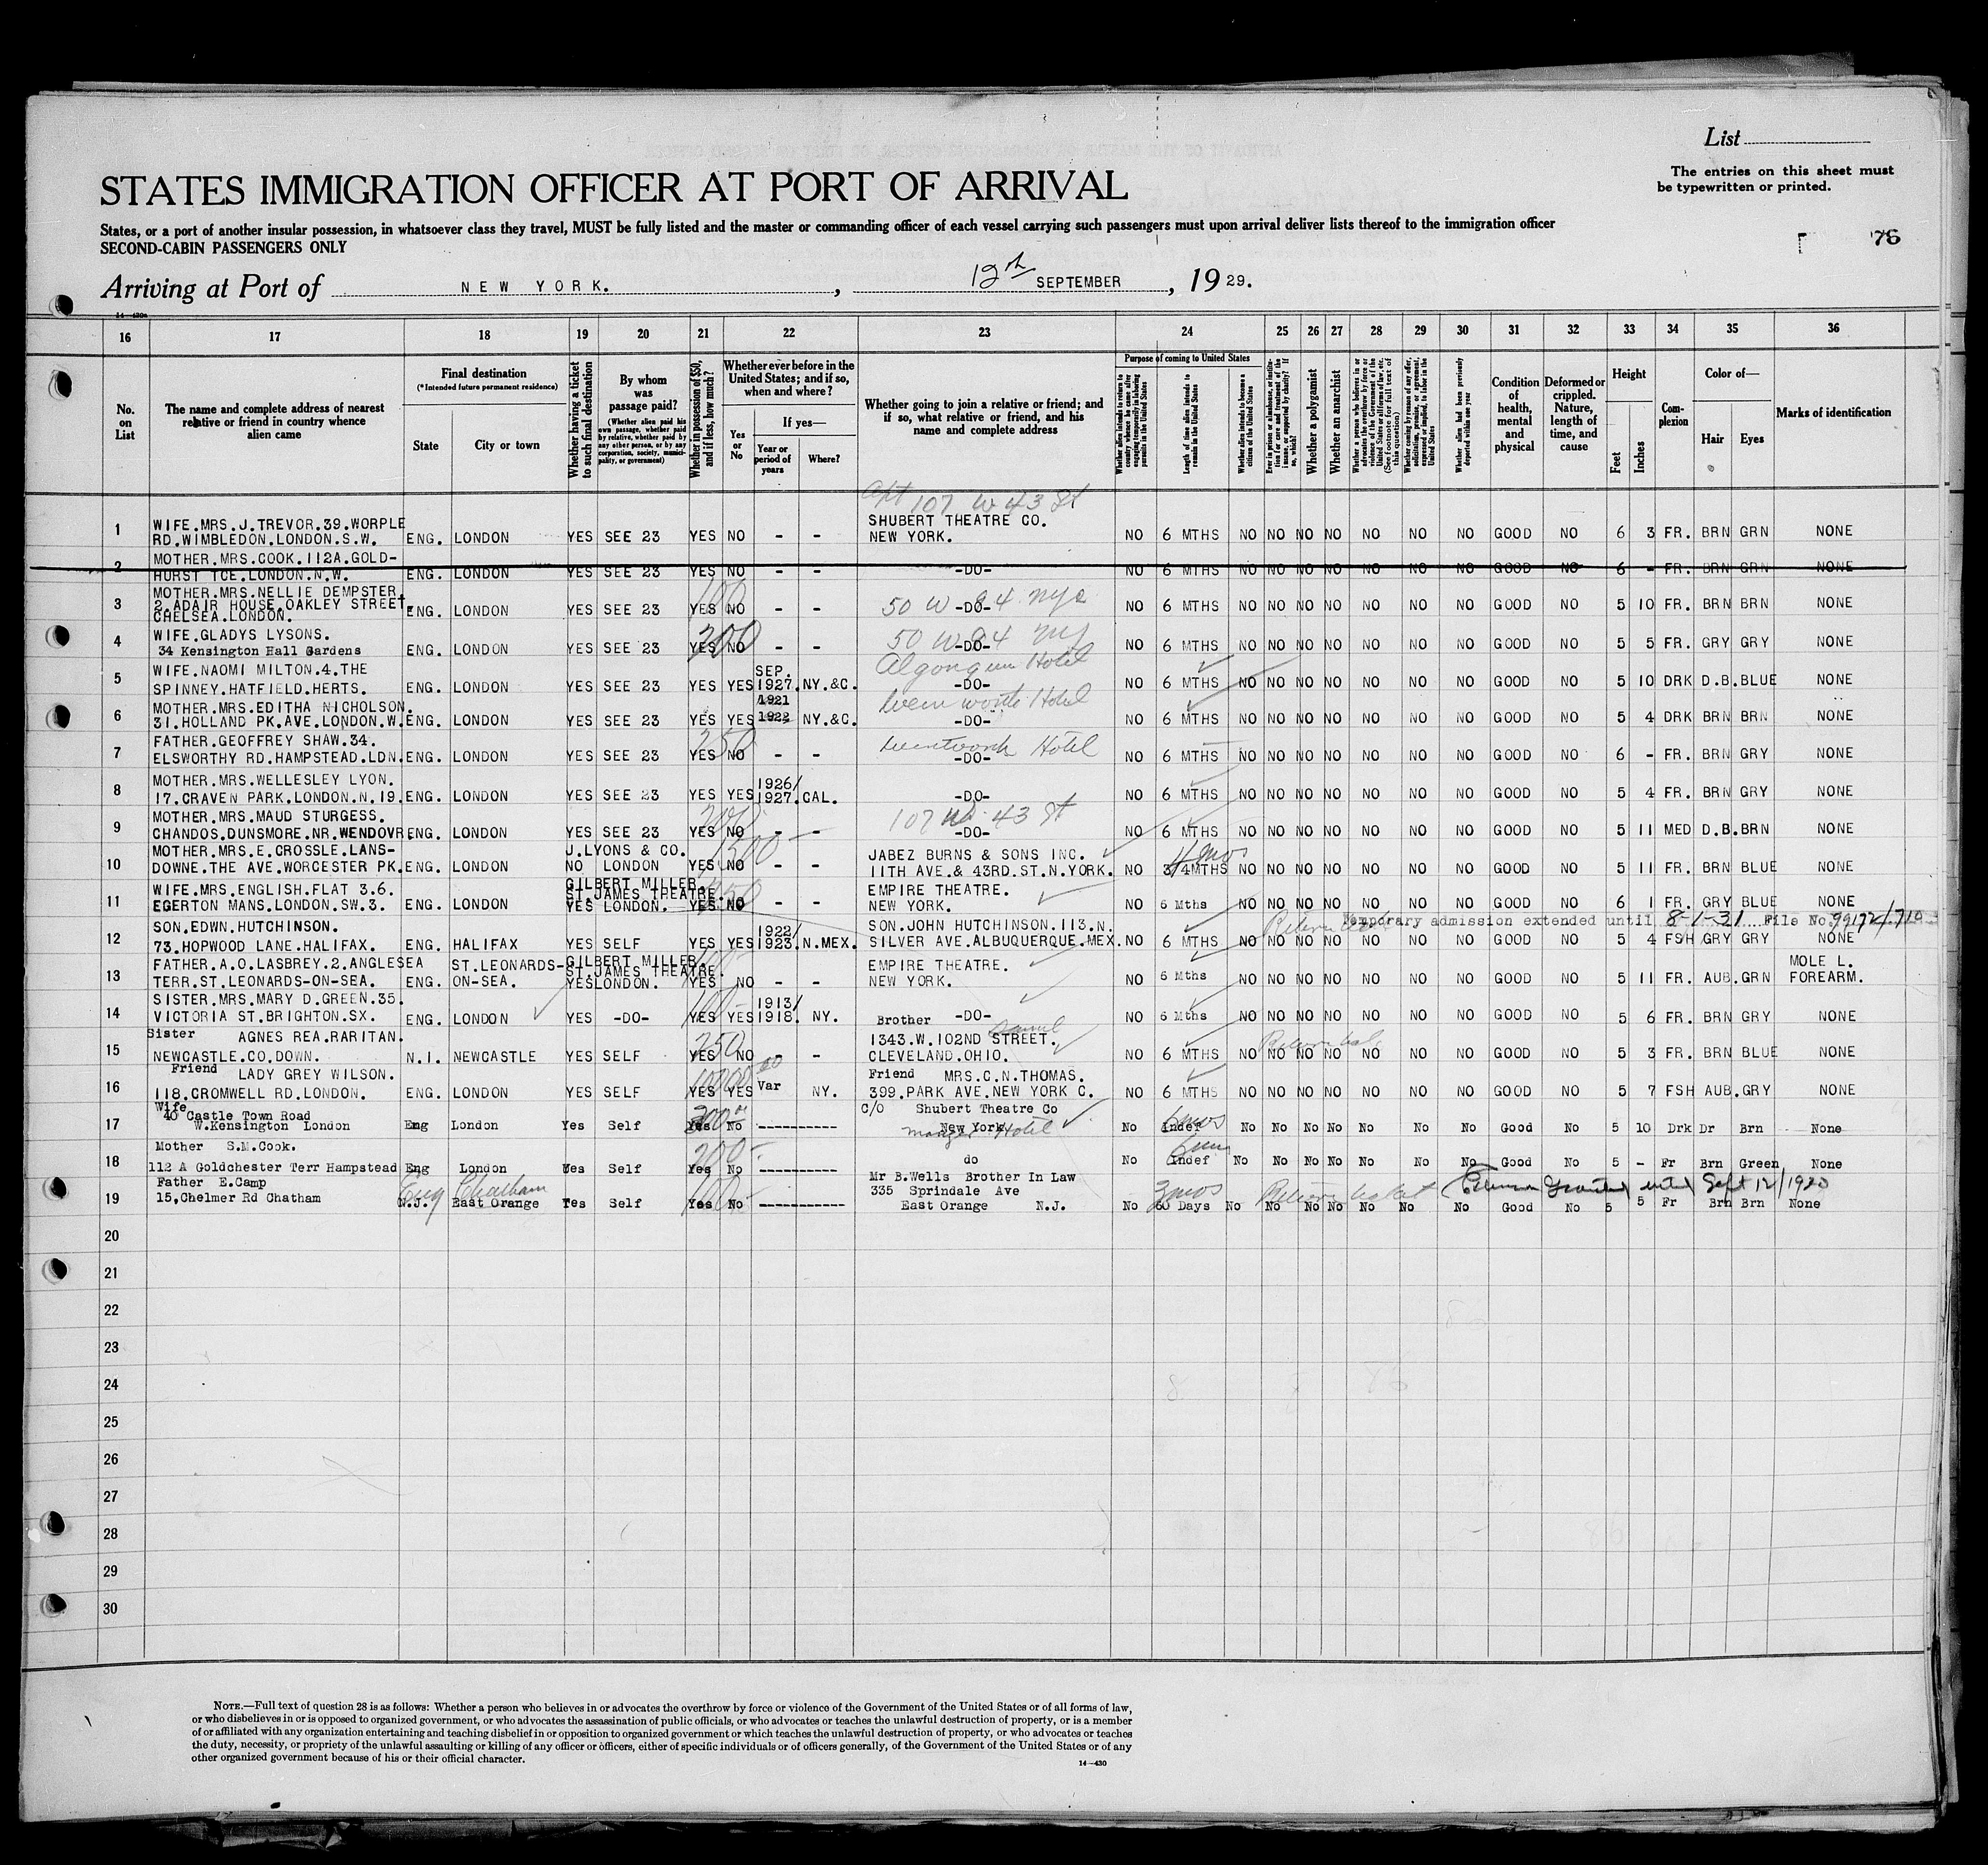 List
The entries on this sheet must
be typewritten or printed.
STATES IMMIGRATION OFFICER AT PORT OF ARRIVAL
States, or a port of another insular possession, in whatsoever class they travel, MUST be fully listed and the master or commanding officer of each vessel carrying such passengers must upon arrival deliver lists thereof to the immigration officer
SECOND-CABIN PASSENGERS ONLY
76
Arriving at Port of NEW YORK. , 12th SEPTEMBER , 1929.
16 17 18 19 20 21 22 23 24 25 26 27 28 29 30 31 32 33 34 35 36
No. on List
The name and complete address of nearest relative or friend in country whence alien came
Final destination
(*Intended future permanent residence)
State
City or town
Whether having a ticket to such final destination
By whom was passage paid?
(Whether alien paid his own passage, whether paid by relative, whether paid by any other person, or by any corporation, society, municipality, or government)
Whether in possession of $50, and if less, how much?
Whether ever before in the United States; and if so, when and where?
Yes or No
If yes—
Year or period of years
Where?
Whether going to join a relative or friend; and if so, what relative or friend, and his name and complete address
Purpose of coming to United States
Whether alien intends to return to country whence he came after engaging temporarily in laboring pursuits in the United States
Length of time alien intends to remain in the United States
Whether alien intends to become a citizen of the United States
Ever in prison or almshouse, or institution for care and treatment of the insane, or supported by charity? If so, which?
Whether a polygamist
Whether an anarchist
Whether a person who believes in or advocates the overthrow by force or violence of the Government of the United States or all forms of law, etc. (See footnote for full text of this question)
Whether coming by reason of any offer, solicitation, promise, or agreement, expressed or implied, to labor in the United States
Whether alien had been previously deported within one year
Condition of health, mental and physical
Deformed or crippled. Nature, length of time, and cause
Height
Feet
Inches
Complexion
Color of—
Hair
Eyes
Marks of identification
Apt 107 W 43 St
1 WIFE.MRS.J.TREVOR.39.WORPLE SHUBERT THEATRE CO.
RD.WIMBLEDON.LONDON.S.W. ENG. LONDON YES SEE 23 YES NO - - NEW YORK. NO 6 MTHS NO NO NO NO NO NO NO GOOD NO 6 3 FR. BRN GRN NONE
2 MOTHER.MRS.COOK.112A.GOLD-
HURST TCE.LONDON.N.W. ENG. LONDON YES SEE 23 YES NO - - -DO- NO 6 MTHS NO NO NO NO NO NO NO GOOD NO 6 - FR. BRN GRN NONE
MOTHER.MRS.NELLIE DEMPSTER. 100
3 2.ADAIR HOUSE.OAKLEY STREET. ENG. LONDON YES SEE 23 YES NO - - 50 W 84 nyc -DO- NO 6 MTHS NO NO NO NO NO NO NO GOOD NO 5 10 FR. BRN BRN NONE
CHELSEA.LONDON.
4 WIFE.GLADYS LYSONS. 200 50 W 84 ny
34 Kensington Hall Gardens ENG. LONDON YES SEE 23 YES NO - - -DO- NO 6 MTHS NO NO NO NO NO NO NO GOOD NO 5 5 FR. GRY GRY NONE
5 WIFE.NAOMI MILTON.4.THE SEP. Algonquin Hotel
SPINNEY.HATFIELD.HERTS. ENG. LONDON YES SEE 23 YES YES 1927. NY.&C. -DO- NO 6 MTHS NO NO NO NO NO NO NO GOOD NO 5 10 DRK D.B. BLUE NONE
6 MOTHER.MRS.EDITHA NICHOLSON. 1921 Hotel
31.HOLLAND PK.AVE.LONDON.W. ENG. LONDON YES SEE 23 YES YES 1922 NY.&C. -DO- NO 6 MTHS NO NO NO NO NO NO NO GOOD NO 5 4 DRK BRN BRN NONE
7 FATHER.GEOFFREY SHAW.34. 250 Wentworth Hotel
ELSWORTHY RD.HAMPSTEAD.LDN. ENG. LONDON YES SEE 23 YES NO - - -DO- NO 6 MTHS NO NO NO NO NO NO NO GOOD NO 6 - FR. BRN GRY NONE
8 MOTHER.MRS.WELLESLEY LYON. 1926/
17.CRAVEN PARK.LONDON.N.19. ENG. LONDON YES SEE 23 YES YES 1927. CAL. -DO- NO 6 MTHS NO NO NO NO NO NO NO GOOD NO 5 4 FR. BRN GRY NONE
9 MOTHER.MRS.MAUD STURGESS. 200 107 W. 43 St
CHANDOS.DUNSMORE.NR.WENDOVR. ENG. LONDON YES SEE 23 YES NO - - -DO- NO 6 MTHS NO NO NO NO NO NO NO GOOD NO 5 11 MED D.B. BRN NONE
10 MOTHER.MRS.E.CROSSLE.LANS- J.LYONS & CO. 1500 JABEZ BURNS & SONS INC. 4 mos
DOWNE.THE AVE.WORCESTER PK. ENG. LONDON NO LONDON YES NO - - 11TH AVE.& 43RD.ST.N.YORK. NO 3/4MTHS NO NO NO NO NO NO NO GOOD NO 5 11 FR. BRN BLUE NONE
11 WIFE.MRS.ENGLISH.FLAT 3.6. GILBERT MILLER. ST.JAMES THEATRE. EMPIRE THEATRE.
EGERTON MANS.LONDON.SW.3. ENG. LONDON YES LONDON. YES NO - - NEW YORK. NO 6 Mths NO NO NO NO NO NO NO GOOD NO 6 1 FR. GRY BLUE NONE
Temporary admission extended until 8-1-31 File No. 99172/710
12 SON.EDWN.HUTCHINSON. 1922/ SON.JOHN HUTCHINSON.113.N.
73.HOPWOOD LANE.HALIFAX. ENG. HALIFAX YES SELF YES YES 1923. N.MEX. SILVER AVE.ALBUQUERQUE.MEX. NO 6 MTHS NO NO NO NO NO NO NO GOOD NO 5 4 FSH GRY GRY NONE
13 FATHER.A.O.LASBREY.2.ANGLESEA ST.LEONARDS- GILBERT MILLER. ST.JAMES THEATRE. EMPIRE THEATRE. MOLE L.
TERR.ST.LEONARDS-ON-SEA. ENG. ON-SEA. YES LONDON. YES NO - - NEW YORK. NO 6 Mths NO NO NO NO NO NO NO GOOD NO 5 11 FR. AUB. GRN FOREARM.
14 SISTER.MRS.MARY D.GREEN.35. 100 1913/
VICTORIA ST.BRIGHTON.SX. ENG. LONDON YES -DO- YES YES 1918. NY. -DO- NO 6 Mths NO NO NO NO NO NO NO GOOD NO 5 6 FR. BRN GRY NONE
Sister AGNES REA.RARITAN. Brother Samuel
15 250 1343.W.102ND STREET.
NEWCASTLE.CO.DOWN. N.I. NEWCASTLE YES SELF YES NO - - CLEVELAND.OHIO. NO 6 MTHS NO NO NO NO NO NO NO GOOD NO 5 3 FR. BRN BLUE NONE
Friend LADY GREY WILSON. Friend MRS.C.N.THOMAS.
16 118.CROMWELL RD.LONDON. ENG. LONDON YES SELF YES YES Var NY. 399.PARK AVE.NEW YORK C. NO 6 MTHS NO NO NO NO NO NO NO GOOD NO 5 7 FSH AUB. GRY NONE
Wife
40 Castle Town Road 200 C/O Shubert Theatre Co 6 mos
17 W.Kensington London Eng London Yes Self Yes No ---------- New York Manger Hotel No Indef No No No No No No No Good No 5 10 Drk Dr Brn None
Mother S.M.Cook. 200 6 mos
18 112 A Goldchester Terr Hampstead Eng London Yes Self Yes No ---------- do No Indef No No No No No No No Good No 5 - Fr Brn Green None
Father E.Camp Eng Chatham 100 Mr B.Wells Brother In Law 3 mos Return ticket Extension Granted until Sept 12/1930
19 15,Chelmer Rd Chatham N.J. East Orange Yes Self Yes No ----------- 335 Sprindale Ave
East Orange N.J. No 60 Days No No No No No No No Good No 5 5 Fr Brn Brn None
20
21
22
23
24
25
26
27
28
29
30
NOTE.—Full text of question 28 is as follows: Whether a person who believes in or advocates the overthrow by force or violence of the Government of the United States or of all forms of law,
or who disbelieves in or is opposed to organized government, or who advocates the assassination of public officials, or who advocates or teaches the unlawful destruction of property, or is a member
of or affiliated with any organization entertaining and teaching disbelief in or opposition to organized government or which teaches the unlawful destruction of property, or who advocates or teaches
the duty, necessity, or propriety of the unlawful assaulting or killing of any officer or officers, either of specific individuals or of officers generally, of the Government of the United States or of any
other organized government because of his or their official character.
14—430